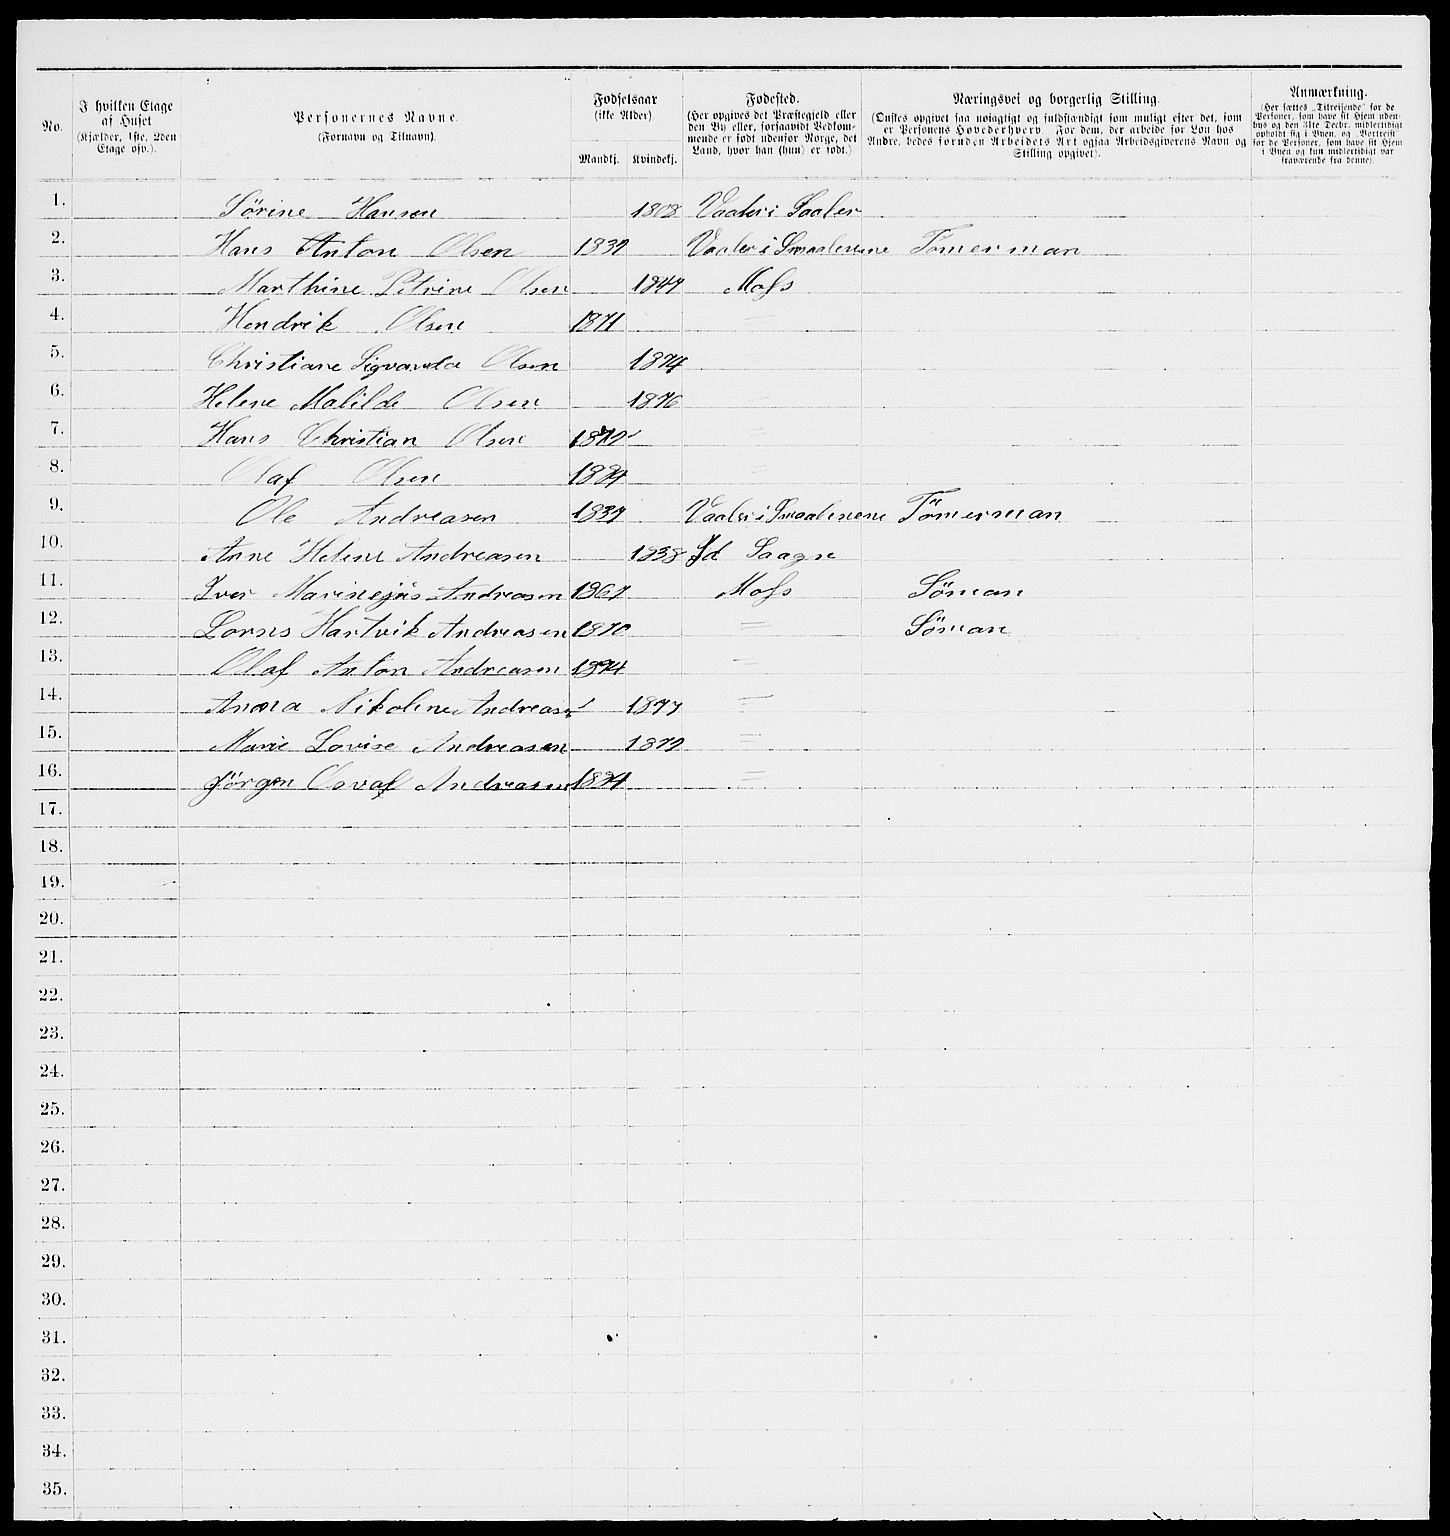 No.
I hvilken Etage
af Huset
(Kjælder, 1ste, 2den
Etage osv.).
Personernes Navne.
(Fornavn og Tilnavn).
Fødselsaar
(ikke Alder)
Mandkj. Kvindekj.
Fødested.
(Her opgives det Præstegjeld eller
den By eller, forsaavidt Vedkom-
mende er født udenfor Norge, det
Land, hvor han (hun) er født.)
Næringsvei og borgerlig Stilling.
(Ønskes opgivet saa nøiagtigt og fuldstændigt som muligt efter det, som
er Personens Hovederhverv. For dem, der arbeide for Løn hos
Andre, bedes foruden Arbeidets Art ogsaa Arbeidsgiverens Navn og
Stilling opgivet).
Anmærkning.
(Her sættes „Tilreisende" for de
Personer, som have sit Hjem uden-
bys og den 31te Decbr. midlertidigt
opholdt sig i Byen, og „Bortreist"
for de Personer, som have sit Hjem
i Byen og kun midlertidigt var
fraværende fra denne).
1. Sørine Hansen 1808 Vaaler i
2. Hans Anton Olsen 1839 Vaaler i Smaalenene Tømerman
3. Marthine Petrine Olsen 1849 Moss
4. Hendrik Olsen 1871 〃
5. Christiane Olsen 1874
6. Helene Matilde Olsen 1876
7. Hans Christian Olsen 1879 〃
8. Olaf Olsen 1884 〃
9. Ole Andreasen 1839 Vaaler i Smaalenene Tømerman
10. Anne Helene Andreasen 1838 Id
11. Iver Andreasen 1867 Moss Søman
12. Hartvik Andreasen 1870 〃 Søman
13. Olaf Anton Andreasen 1874 〃
14. Anna Nikoline Andreasen 1877 〃
15. Marie Lovise Andreasen 1879 〃
16. Jørgen Andreasen 1884 〃
17.
18.
19.
20.
21.
22.
23.
24.
25.
26.
27.
28.
29.
30.
31.
32.
33.
34.
35.